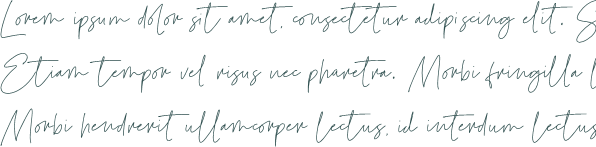 Lorem ipsum dolor sit amet, consectetur adipiscing elit. S
Etiam tempor vel risus nec pharetra. Morbi fringilla l
Morbi hendrerit ullamcorper lectus, id interdum lectus